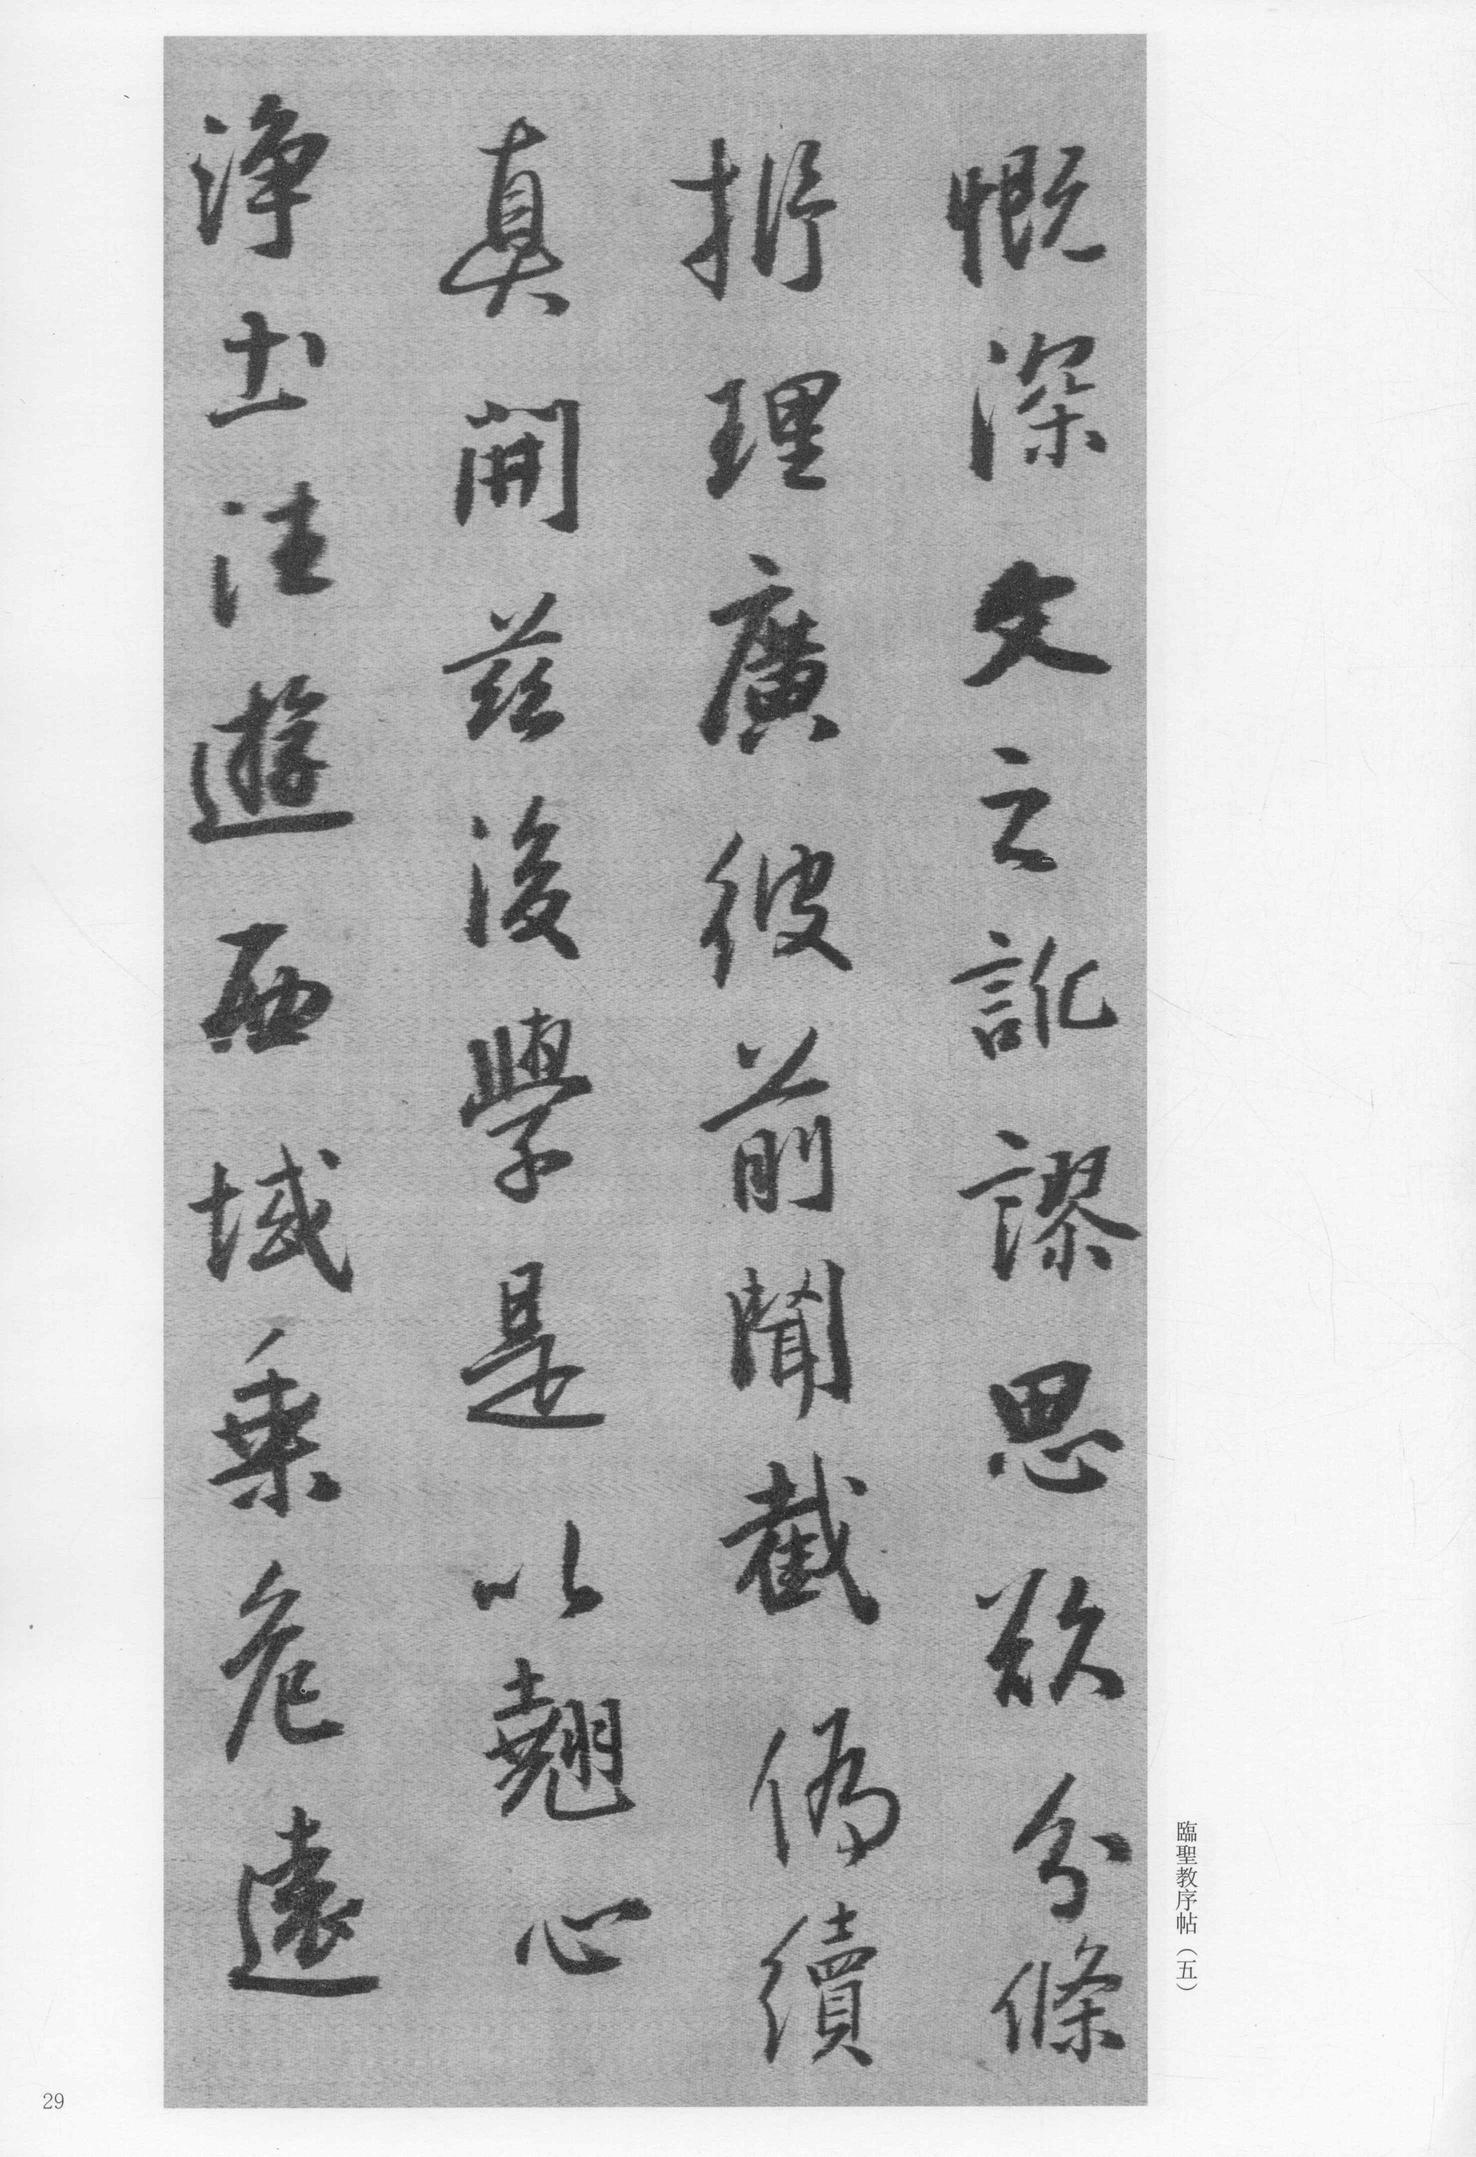 慨深文之訛謬思欲分條
析理廣彼前聞截偽續
真開茲後學是以翹心
淨土法遊西域乗危遠
臨聖教序帖（五）
29